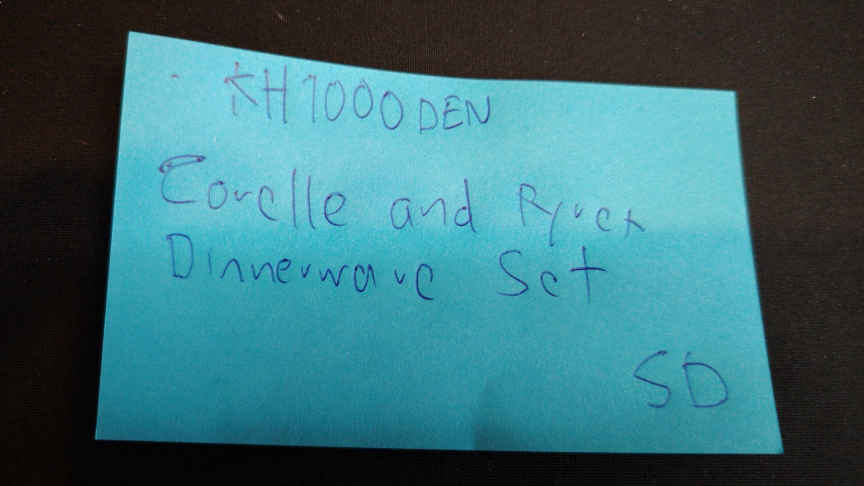 KH1000DEN
Corelle and Pyrex
Dinnerware Set
SD